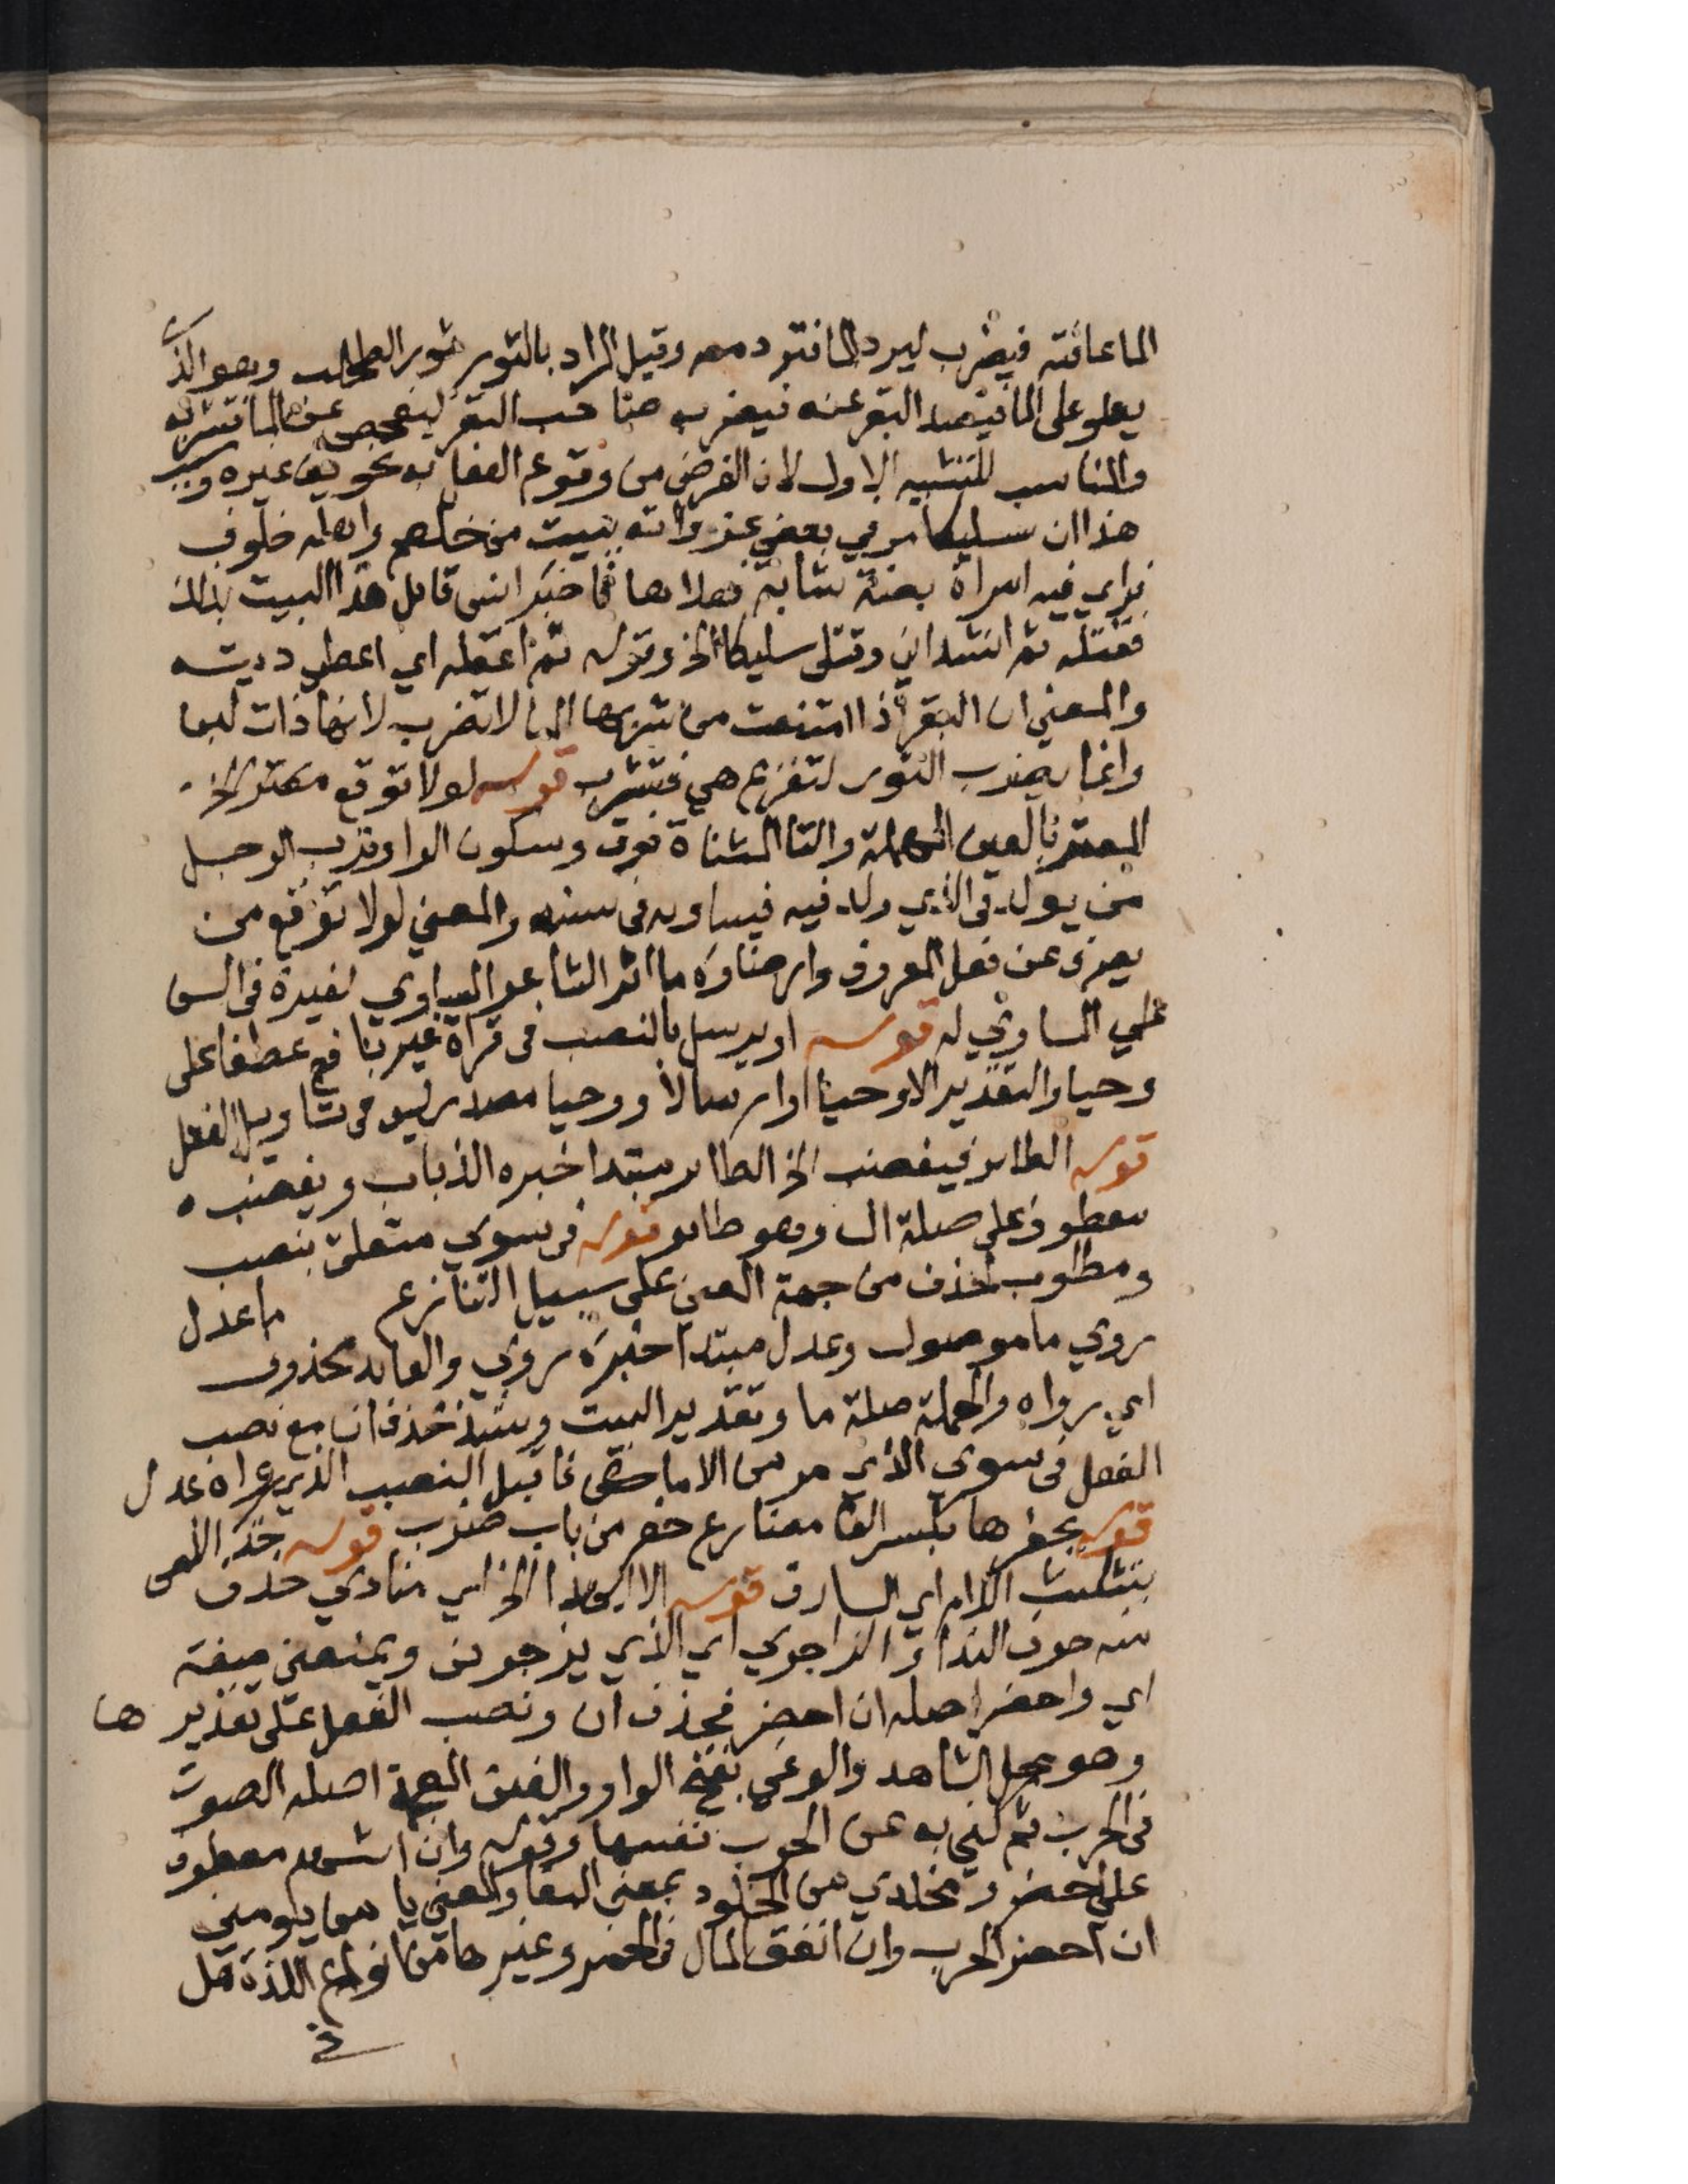 الما عافته فيضرب ليرد الما فترد معه وقيل المراد بالثور ثور الطحلب وهو الذي
يعلو على الما فيصد البقر عنه فيضربه صاحب البقر ليفحص عن الما فتشربه
والمناسب للتشبيه الاول لان الغرض من وقوع الفعل به تخويف غيره وسبب
هذا ان سليكا مر في بعض غزواته ببيت من خثعم واهله خلوف
فراي فيه امراة بضة شابة فعلاها فاخبر انس قاتل هذا البيت بذلك
فقتله ثم انشد اني وقتلي سليكا الخ وقوله ثم اعقله اي اعطي ديته
والمعني ان البقر اذا امتنعت من شربها الما لا تضرب لانها ذات لبن
وانما يضرب الثور لتفزع هي فتشرب قوله لولا توقع معتر الخ
المعتر بالعين المهملة والتا المثناة فوق وسكون الرا وترب الرجل
من يولد في الذي ولد فيه فيساويه في سنه والمعني لولا توقع من
يعرى عن فعل المعروف وارضاوه ما اثر الشاعر المساوي لغيره في السن
علي المساوي له قوله او يرسل بالنصب في قراة غير نافع عطفا على
وحيا والتقدير الا وحيا او ارسالا ووحيا مصدر ليس في تاويل الفعل
قوله الطائر فيغضب الخ الطائر مبتدا خبره الذباب ويغضب
معطوف على صلة ال وهو طائر قوله في سوي متعلق بنصب
ومطلوب لحذف من جهة المعني على سبيل التنازع ما عدل
روي ما موصول وعدل مبتدا خبره روي والعايد محذوف
اي رواه والجملة صلة ما وتقدير البيت وشذ حذف ان مع نصب
الفعل في سوي الذي مر من الاماكن فاقبل النصب الذي رواه عدل
قوله يحفرها بكسر الفا مضارع حفر من باب ضرب قوله خذ اللص
بتثليث اللام اي السارق قوله الا ايهذا الخ اي منادي حذف
منه حرف الندا والزاجري اي الذي يزجرني ويمنعني صفة
اي واحضر اصله ان احضر فحذف ان ونصب الفعل على تقديرها
وهو محل الشاهد والوغي بفتح الواو والغين المعجمة اصله الصوت
في الحرب ثم كني به عن الحرب نفسها وقوله وان اشهد معطوف
على احضر ومخلدي من الخلود بمعني البقا والمعني يا من يلومني
ان احضر الحرب وان انفق المال في الخمر وغيرها من انواع اللذة هل